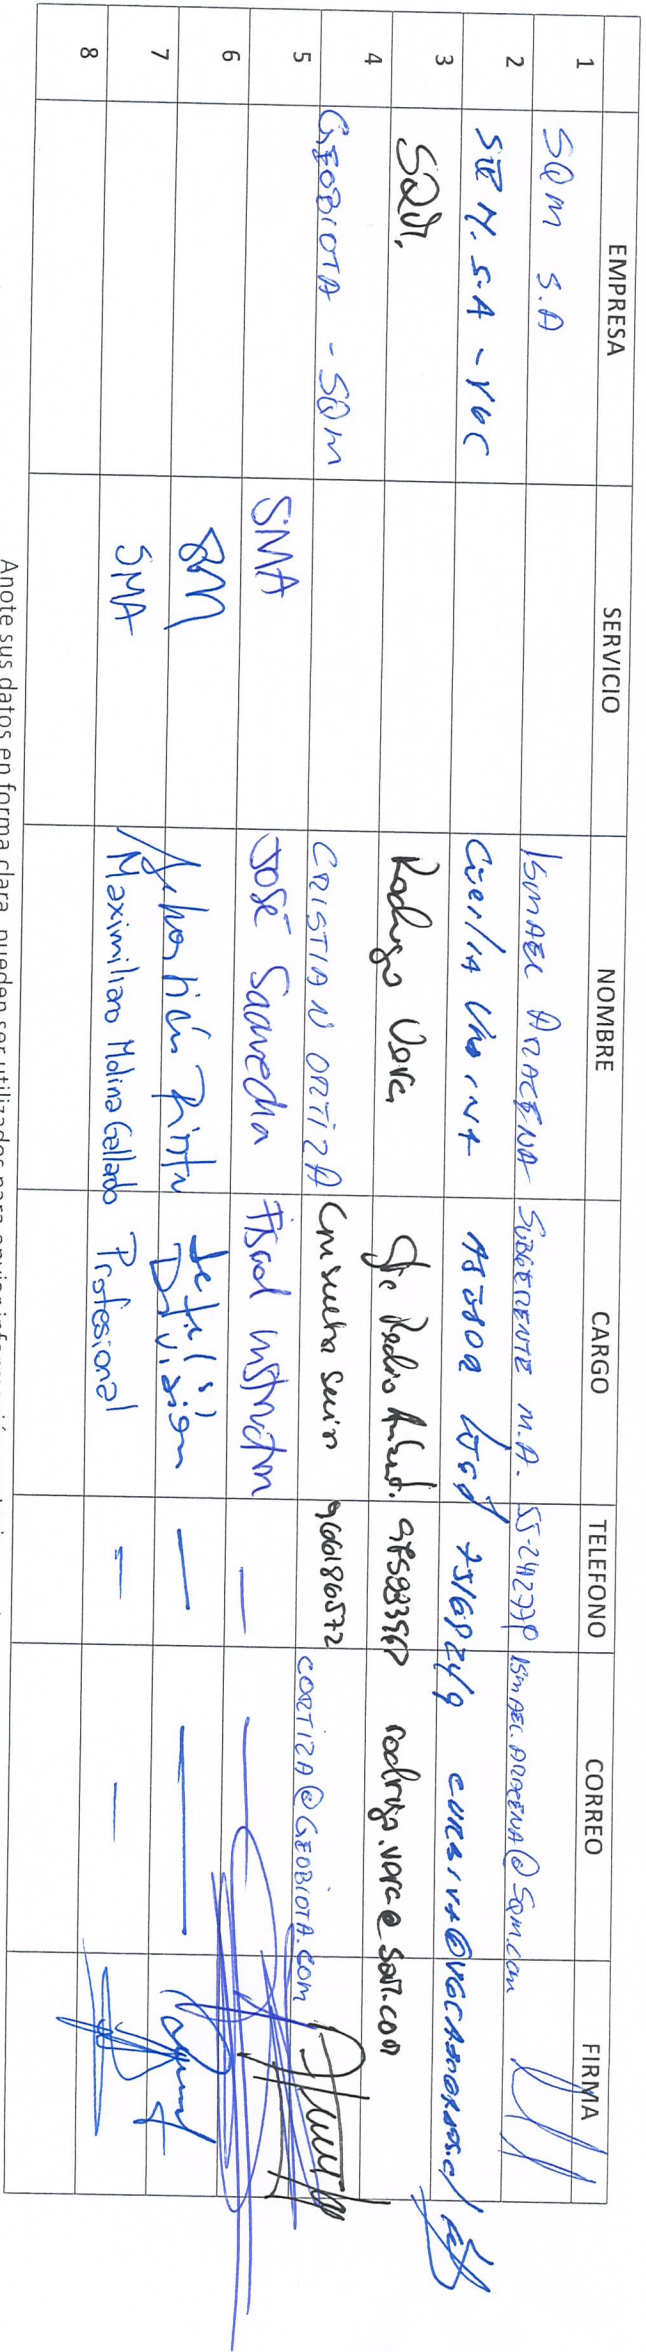 EMPRESA SERVICIO NOMBRE CARGO TELEFONO CORREO FIRMA
1 SQM S.A ISMAEL ARACENA SUBGERENTE M.A. 55-2412770 ISMAEL.ARACENA@SQM.com
2 S.A - VGC ASESOR 75168249
3 SQM. Rodrigo Vera 97582356 rodrigo.vera@sqm.com
4 GEOBIOTA - SQM CRISTIAN ORTIZA Consultor Senior 966186572 CORTIZA@GEOBIOTA.COM
5 SMA José Saavedra Fiscal Instructor —
6 Jefe (s) División — —
7 SMA Maximiliano Molina Gallardo Profesional — —
8
Anote sus datos en forma clara, pueden ser utilizados para enviar